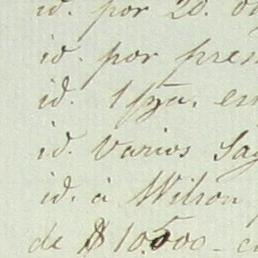 id. por 20. o
id. por pres
id. 1 en
id. varios Sa
id. á Wilson
de $10.500 - c